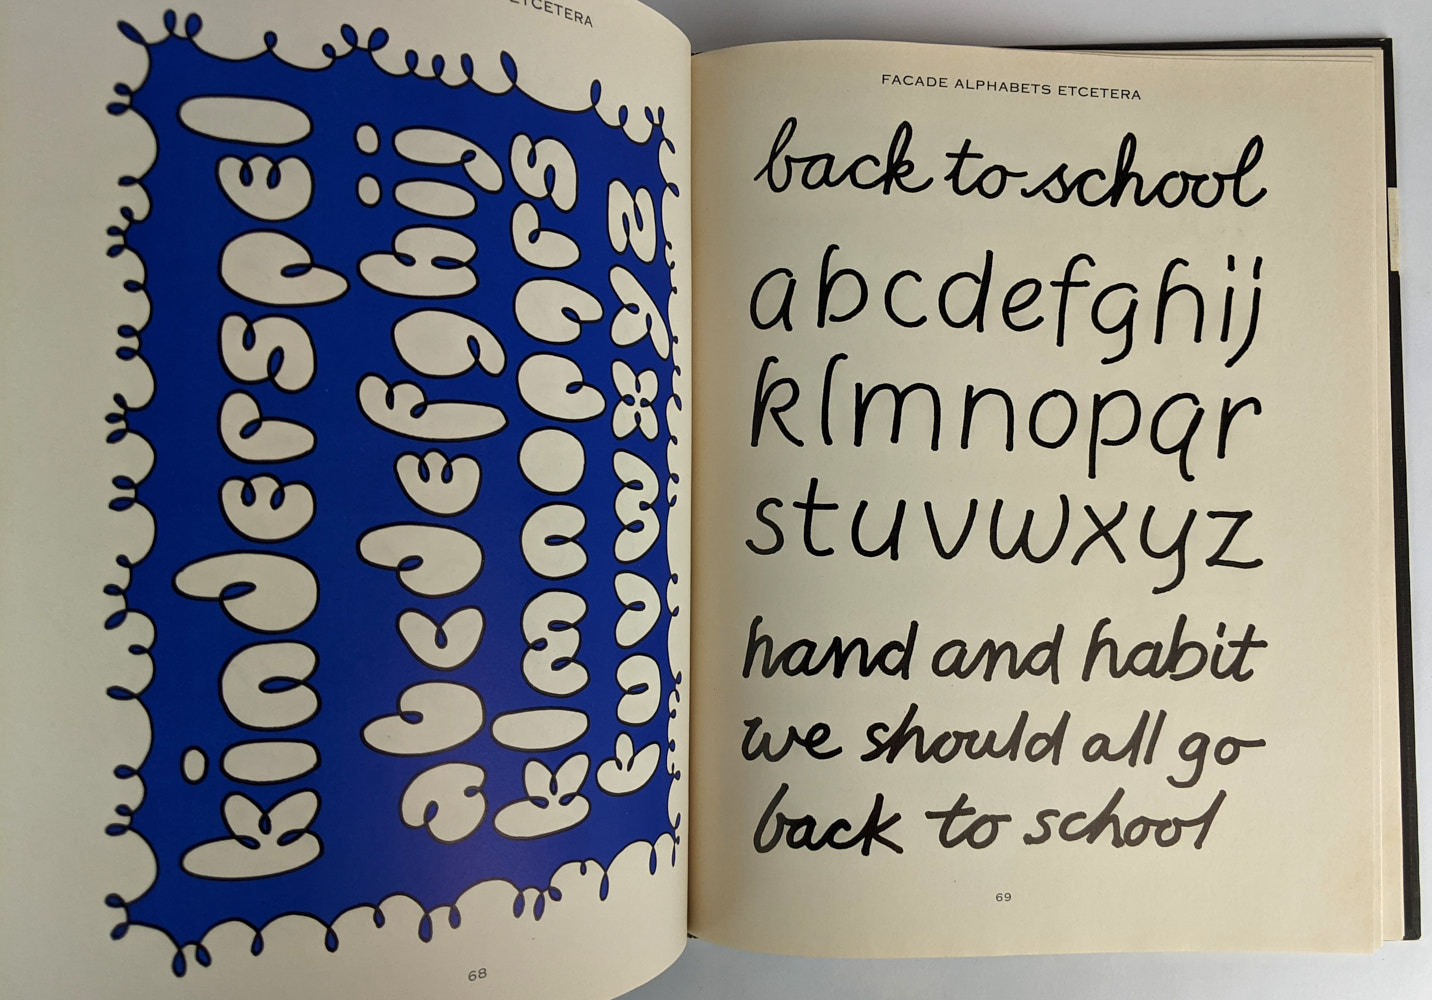 ETCETERA
kinderspel
abcdefghij
klmnopqrs
tuvwxyz
68
FACADE ALPHABETS ETCETERA
back to school
abcdefghij
klmnopqr
stuvwxyz
hand and habit
we should all go
back to school
69